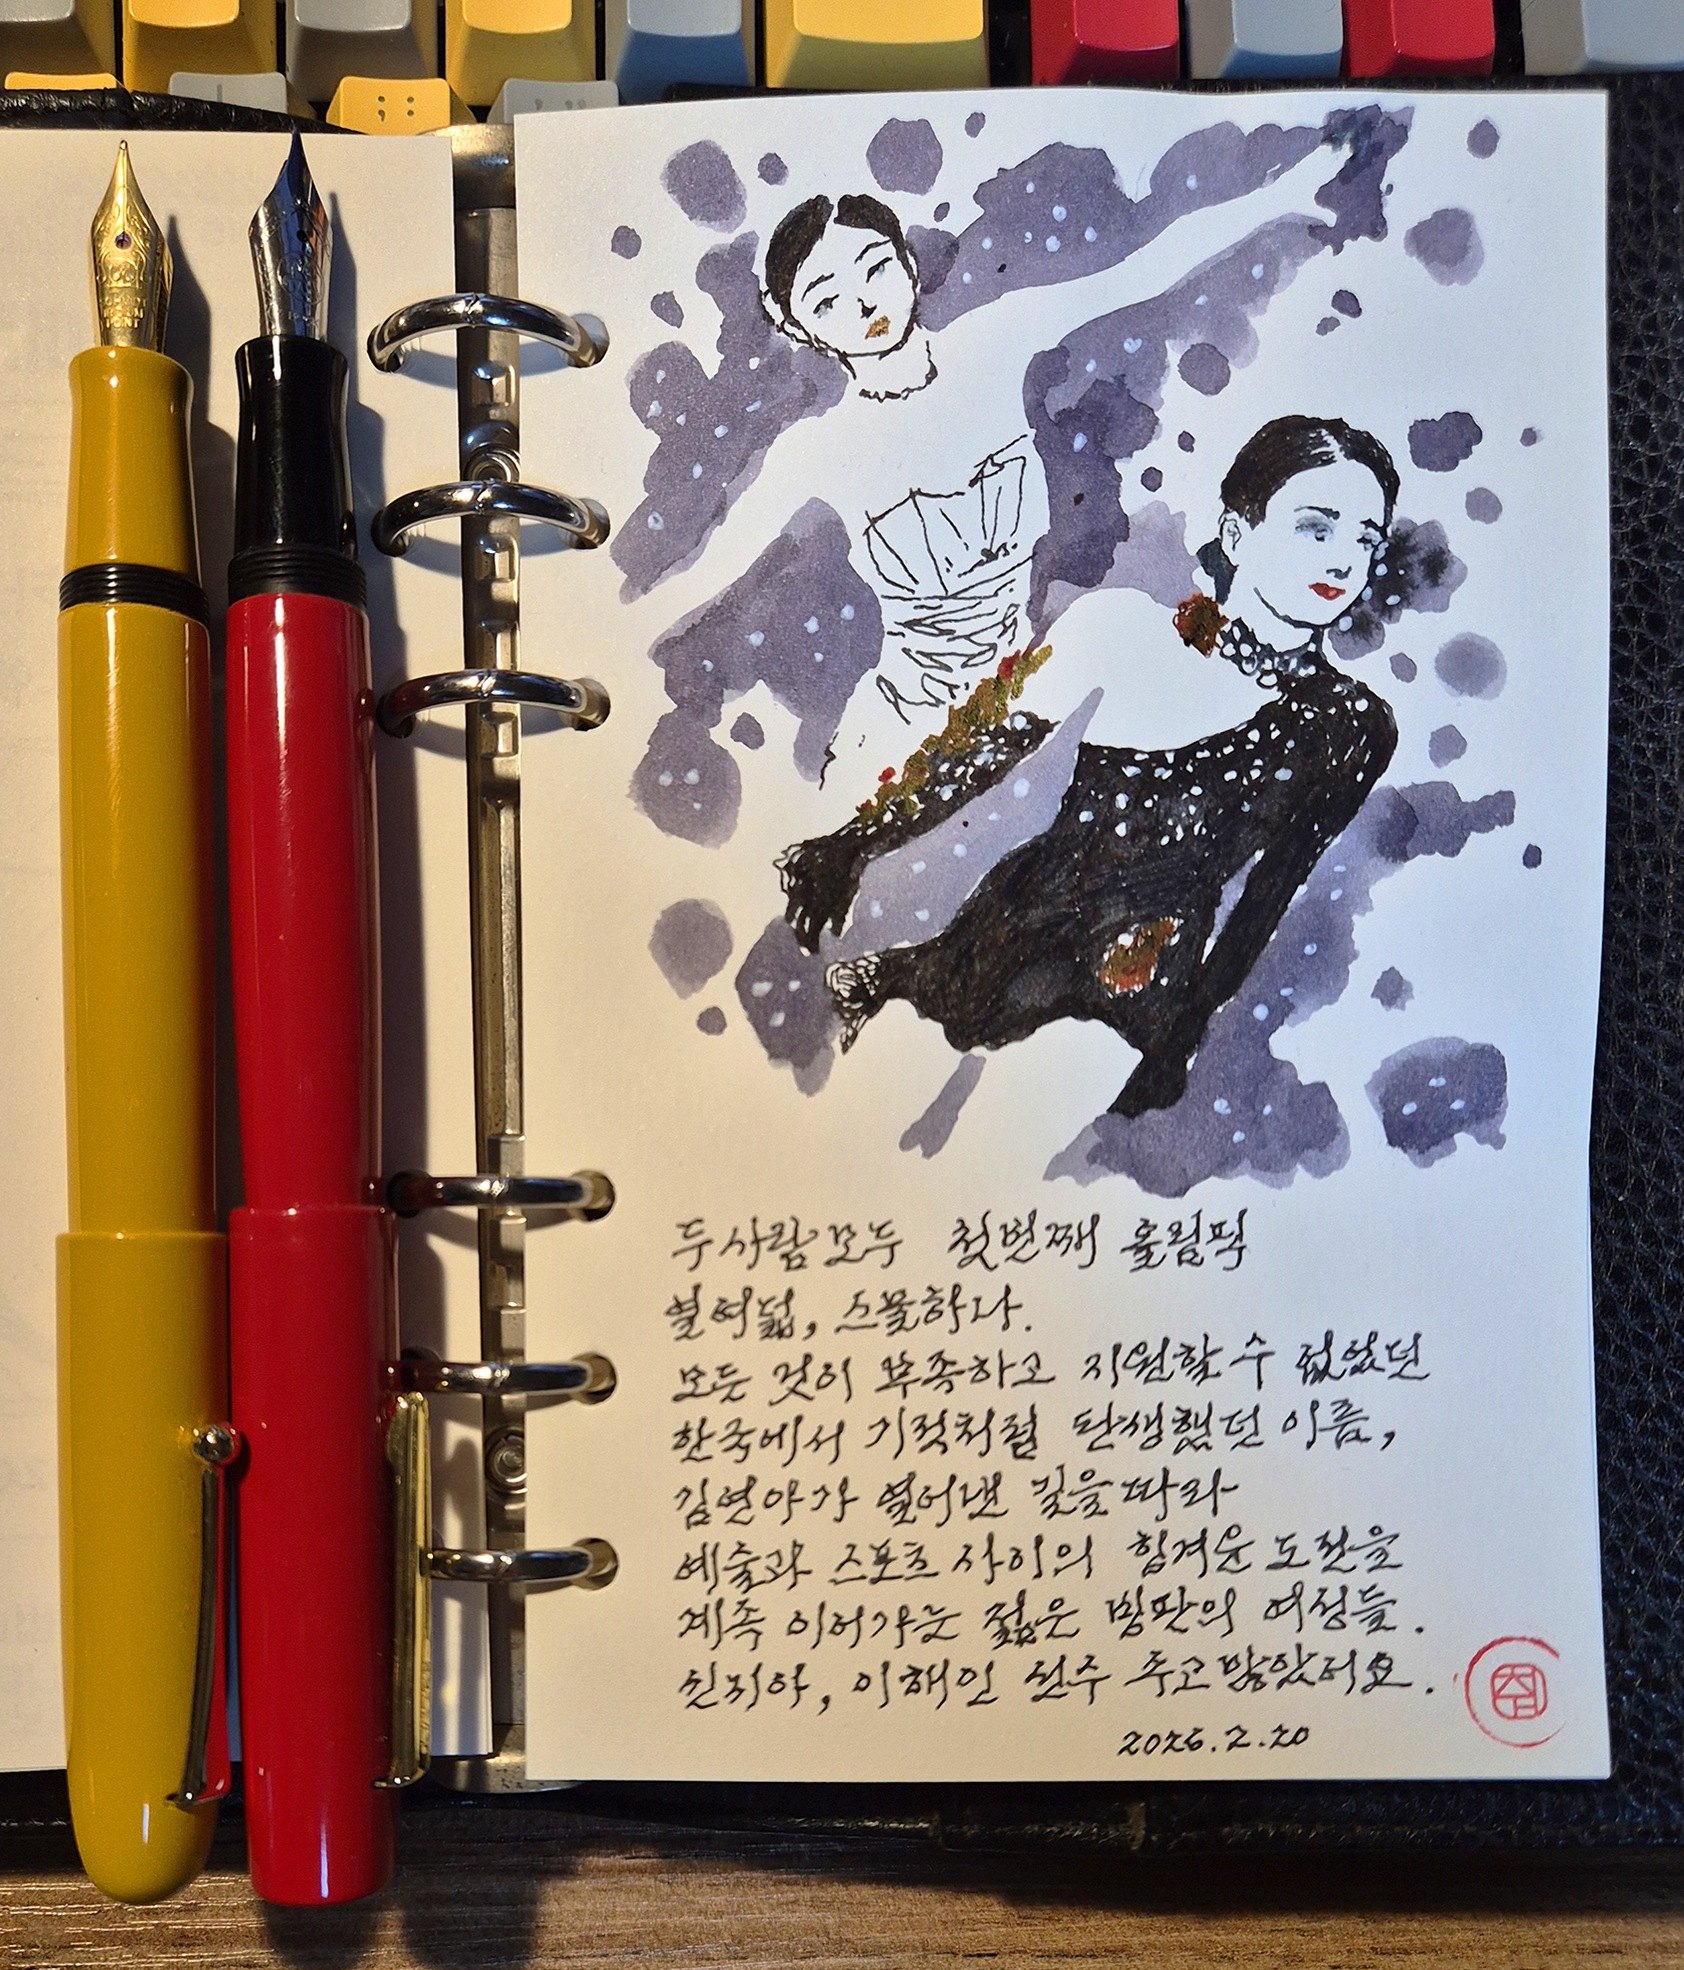 두 사람 모두 첫번째 올림픽
열여덟, 스물하나.
모든 것이 부족하고 지원할 수 없었던
한국에서 기적처럼 탄생했던 이름,
김연아가 열어낸 길을 따라
예술과 스포츠 사이의 힘겨운 도전을
계속 이어가는 젊은 빙판의 여성들.
신지아, 이해인 선수 수고많았어요.
2026.2.20